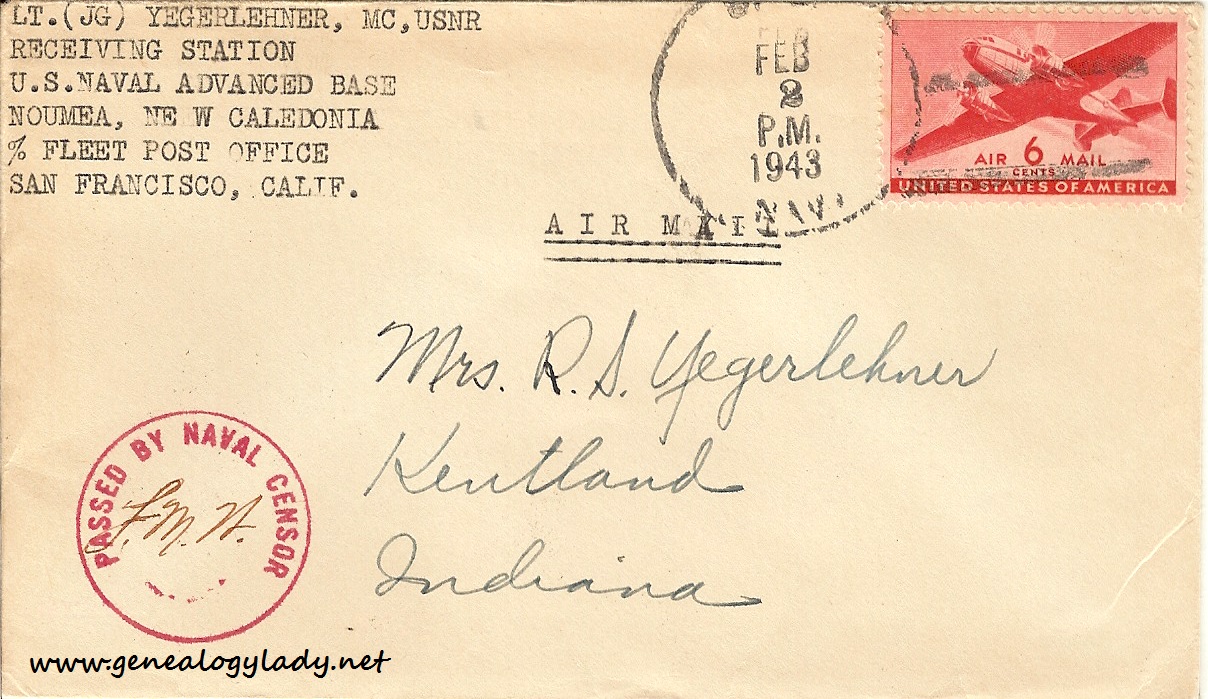 LT.(JG) YEGERLEHNER, MC,USNR
RECEIVING STATION
U.S.NAVAL ADVANCED BASE
NOUMEA, NE W CALEDONIA
% FLEET POST OFFICE
SAN FRANCISCO, CALIF.
FEB
2
P.M.
1943
NAVY
AIR 6 MAIL
CENTS
UNITED STATES OF AMERICA
A I R M A I L
Mrs. R. S. Yegerlehner
Kentland
Indiana
PASSED BY NAVAL CENSOR
www.genealogylady.net